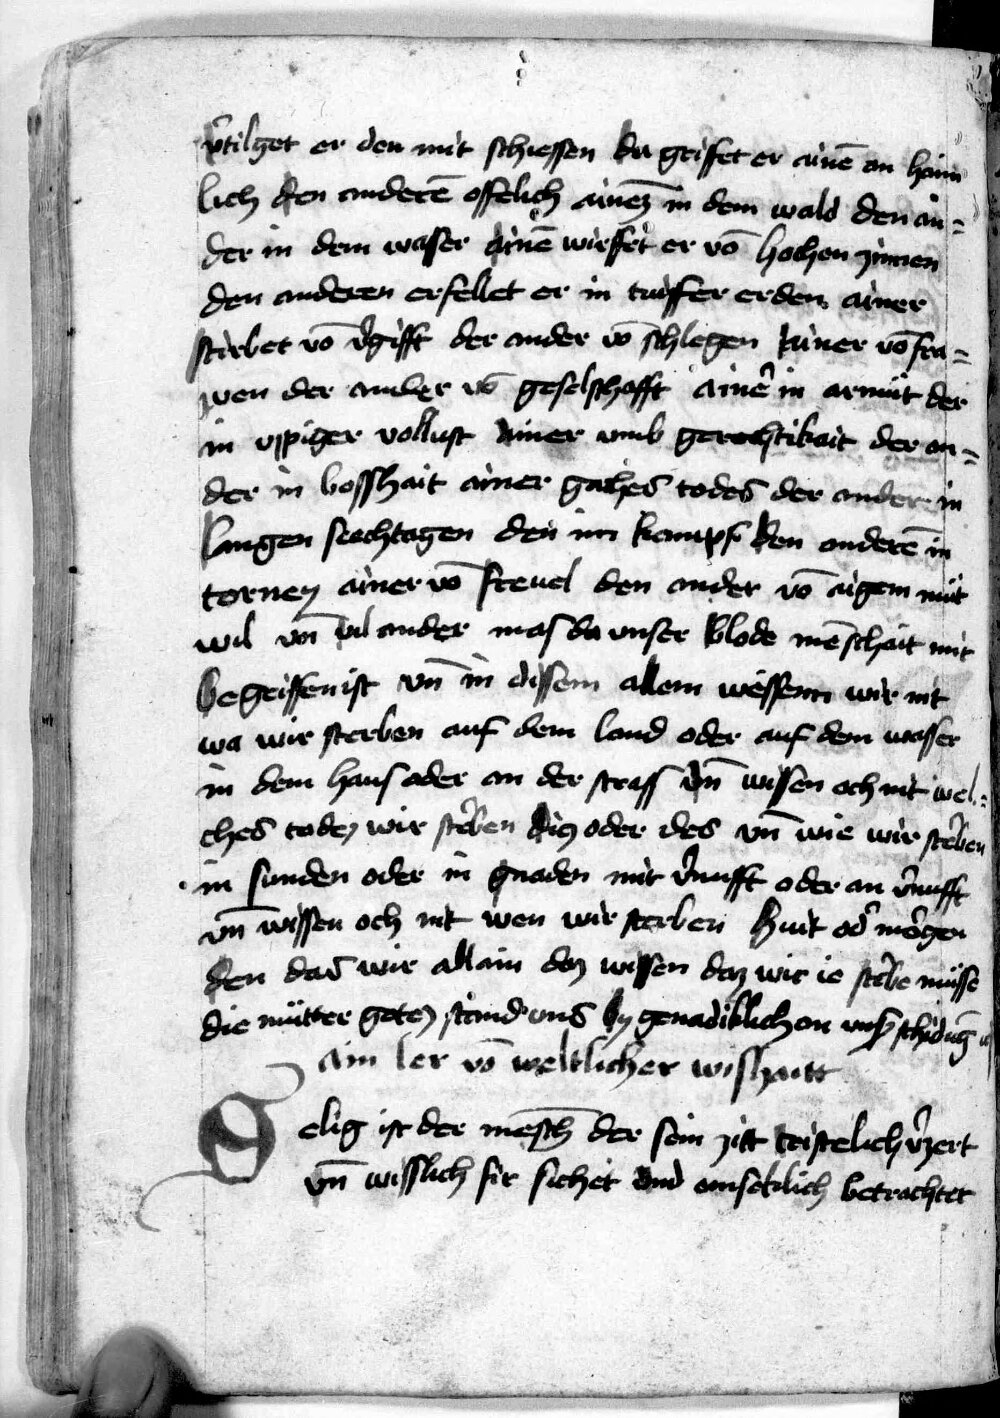 v̄tilget er den mit schiessen da greiffet er ainē an haim
lich den anderē offelich ainez̄ in dem wald den an=
der in dem wasser ainē wirffet er vō hochen zinnen
den anderen erfellet er in tuiffer erden ainer
stirbet vō v̄gifft der ander vō schlegen ainer vō fra=
wen der ander vō geselschafft ainer̄ in armůt der
in vppiger vollust ainer vmb gerechtikait der an=
der in bosshait ainer gaches todes der ander in
langen siechtagen den im kampf den anderē in
torney ainer vō freuel den ander vō aigem můt
wil von vil ander mas da vnser blode mēschait mit
begriffen ist vn̄ in dissem allem wėssenn wir nit
wa wir sterben auf dem land oder auf dem wasser
in dem haus oder an der strass vn̄ wissen och nit wel=
ches todez wir ster̄ben diz oder des vn̄ wie wir ster̄ben
in sunden oder in gnaden mit v̄nufft oder an v̄nufft
vn̄ wissen och nit wen wir sterben huit od̄ morgen
den das wir allain daz wissen daz wir ie ster̄be müsse
die můtter gotez stand vns by genadiklichen an vnser schidūg
Ain ler vō weltlicher wishaitt
Selig ist der mēsch der sein zitt cristelich v̄zert
vn̄ wisslich fir sichet vnd emseklich betrachtet